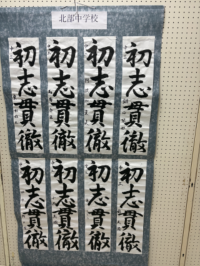 北部中学校
初志貫徹
初志貫徹
初志貫徹
初志貫徹
初志貫徹
初志貫徹
初志貫徹
初志貫徹